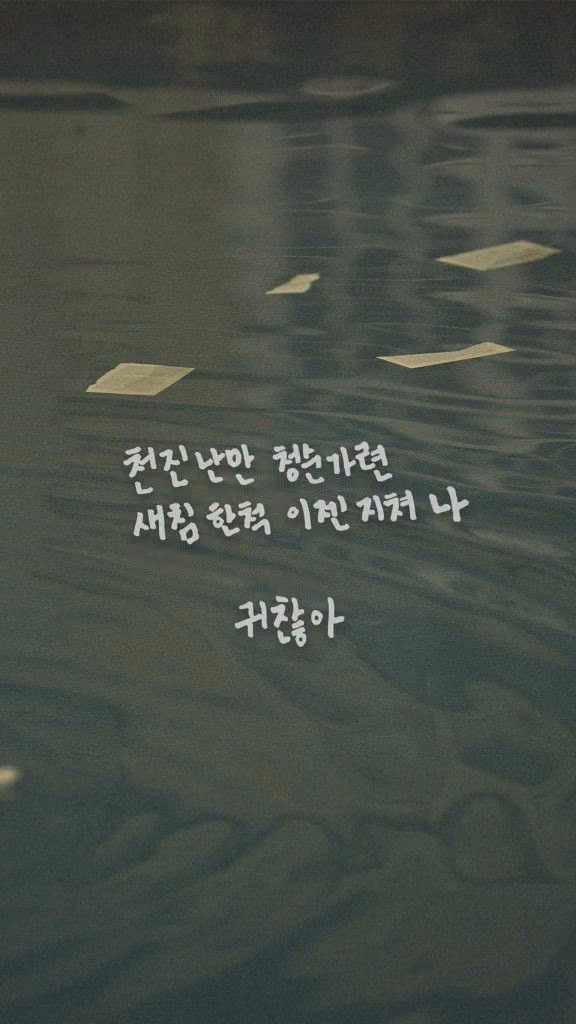 천진난만 청순가련
새침한척 이젠 지쳐 나
귀찮아